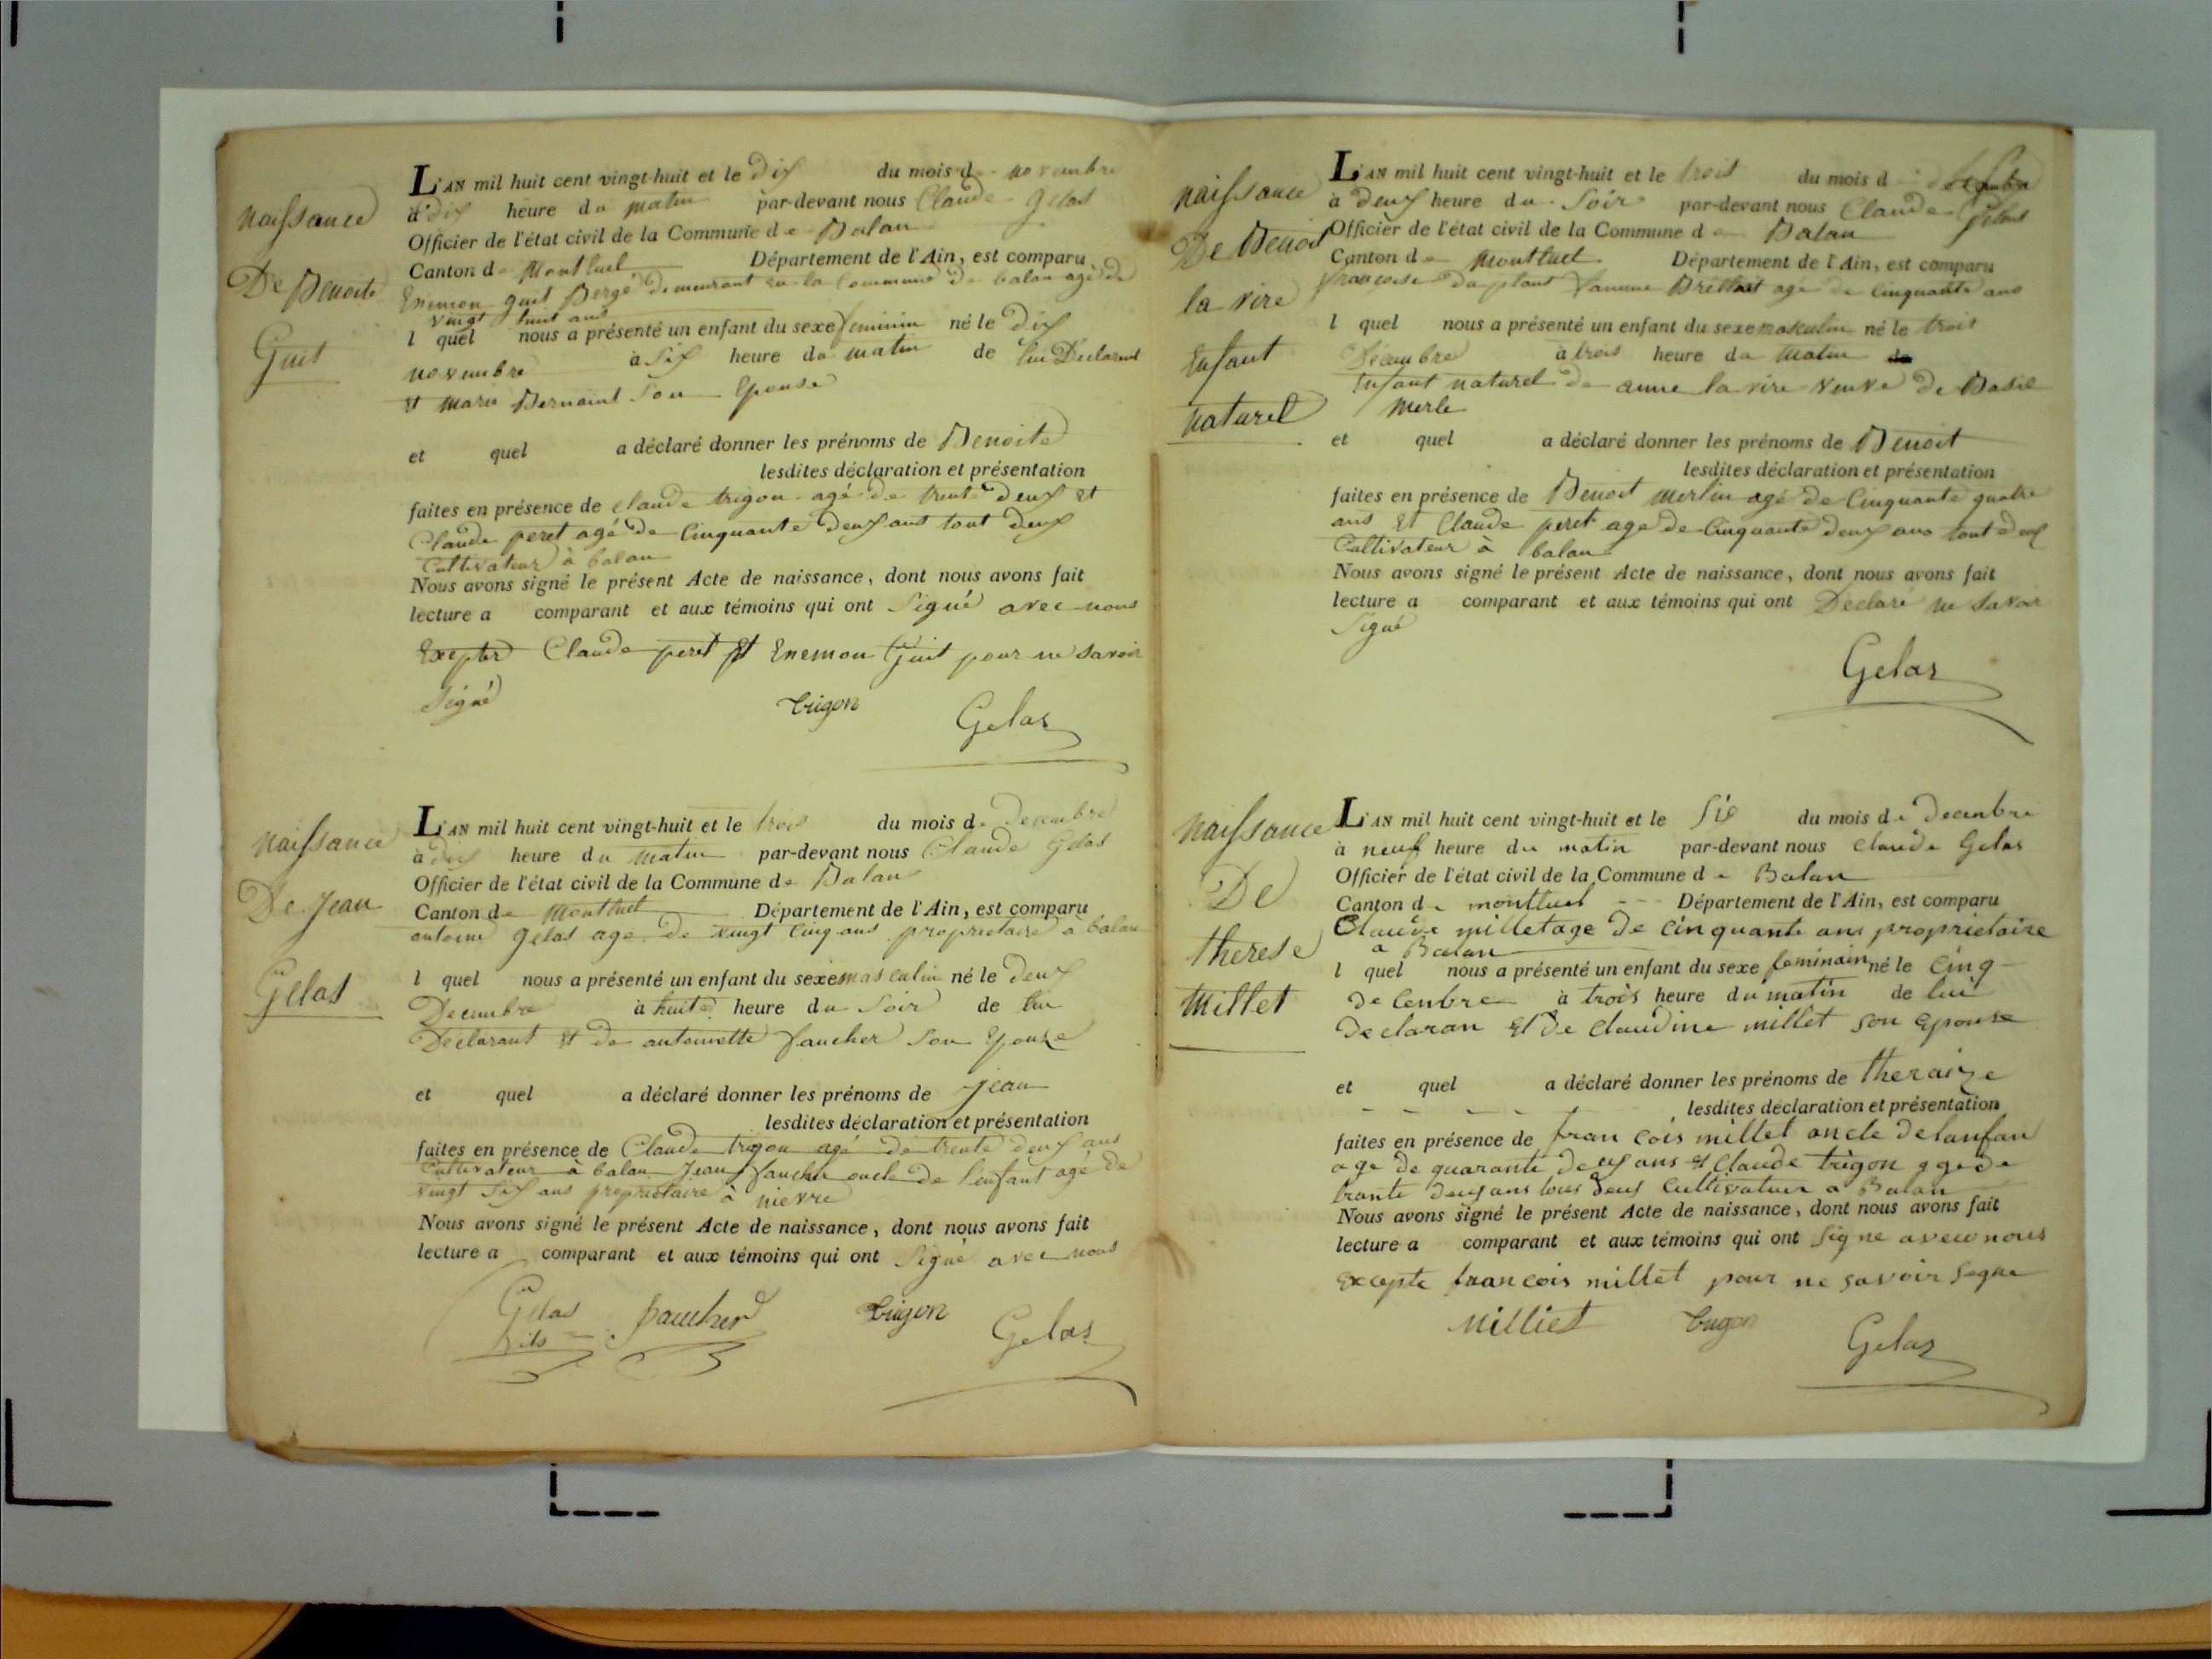 naissance
De Benoite
Guit
L'AN mil huit cent vingt-huit et le dix du mois de novembre
à dix heure du matin par-devant nous Claude Gelas
Officier de l'état civil de la Commune de Balan
Canton de Montluel Département de l'Ain, est comparu
Enemon guit Bergé demeurant en la Commune de balan agé de
vingt huit ans
l quel nous a présenté un enfant du sexe feminin né le dix
novembre à six heure du matin de lui Declarant
et marie Bernaint Son Epouse
et quel a déclaré donner les prénoms de Benoite
lesdites déclaration et présentation
faites en présence de claude trigon agé de trente deux et
Claude peret agé de Cinquante deux ans tout deux
Cultivateur à balan
Nous avons signé le présent Acte de naissance, dont nous avons fait
lecture a comparant et aux témoins qui ont Signé avec nous
Excepter Claude peret et Enemon Guit pour ne savoir
Signé
trigon Gelas
naissance
De jean
Gelas
L'AN mil huit cent vingt-huit et le trois du mois de Decembre
à dix heure du matin par-devant nous Claude Gelas
Officier de l'état civil de la Commune de Balan
Canton de Montluel Département de l'Ain, est comparu
antoine gelas age de vingt cinq ans proprietaire a balan
l quel nous a présenté un enfant du sexe masculin né le deux
Decembre à huite heure du Soir de lui
Declarant et de antoinette faucher Son Epouze
et quel a déclaré donner les prénoms de jean
lesdites déclaration et présentation
faites en présence de Claude trigon agé de trente deux ans
Cultivateur à balan Jean faucher oncle de l'enfant agé de
vingt Six ans proprietaire à nievre
Nous avons signé le présent Acte de naissance, dont nous avons fait
lecture a comparant et aux témoins qui ont Signé avec nous
Gelas fils faucher trigon Gelas
naissance
De Benoit
la vire
Enfant
naturel
L'AN mil huit cent vingt-huit et le trois du mois d decembre
à deux heure du Soir par-devant nous Claude Gelas
Officier de l'état civil de la Commune de Balan
Canton de Montluel Département de l'Ain, est comparu
francoise duplant famme age de cinquante ans
l quel nous a présenté un enfant du sexe masculin né le trois
Decembre à trois heure du matin
Enfant naturel de anne la vire veuve de Basil
Merle
et quel a déclaré donner les prénoms de Benoit
lesdites déclaration et présentation
faites en présence de Benoit merlin agé de Cinquante quatre
ans et Claude peret age de Cinquante deux ans tout deux
Cultivateur à balan
Nous avons signé le présent Acte de naissance, dont nous avons fait
lecture a comparant et aux témoins qui ont Déclaré ne Savoir
Signé
Gelas
naissance
De
therese
Millet
L'AN mil huit cent vingt-huit et le Sis du mois de decenbre
à neuf heure du matin par-devant nous claude Gelas
Officier de l'état civil de la Commune de Balan
Canton de montluel Département de l'Ain, est comparu
Claude millet age de cinquante ans proprietaire
a Balan
l quel nous a présenté un enfant du sexe feminain né le cinq
decenbre à trois heure du matin de lui
declaran et de claudine millet son epouse
et quel a déclaré donner les prénoms de theraize
lesdites déclaration et présentation
faites en présence de francois millet oncle delanfan
age de quarante deux ans et claude trigon agede
trante deux ans tous deux cultivateur a Balan
Nous avons signé le présent Acte de naissance, dont nous avons fait
lecture a comparant et aux témoins qui ont Signe avec nous
excepte francois millet pour ne savoir segne
Milliet trigon Gelas